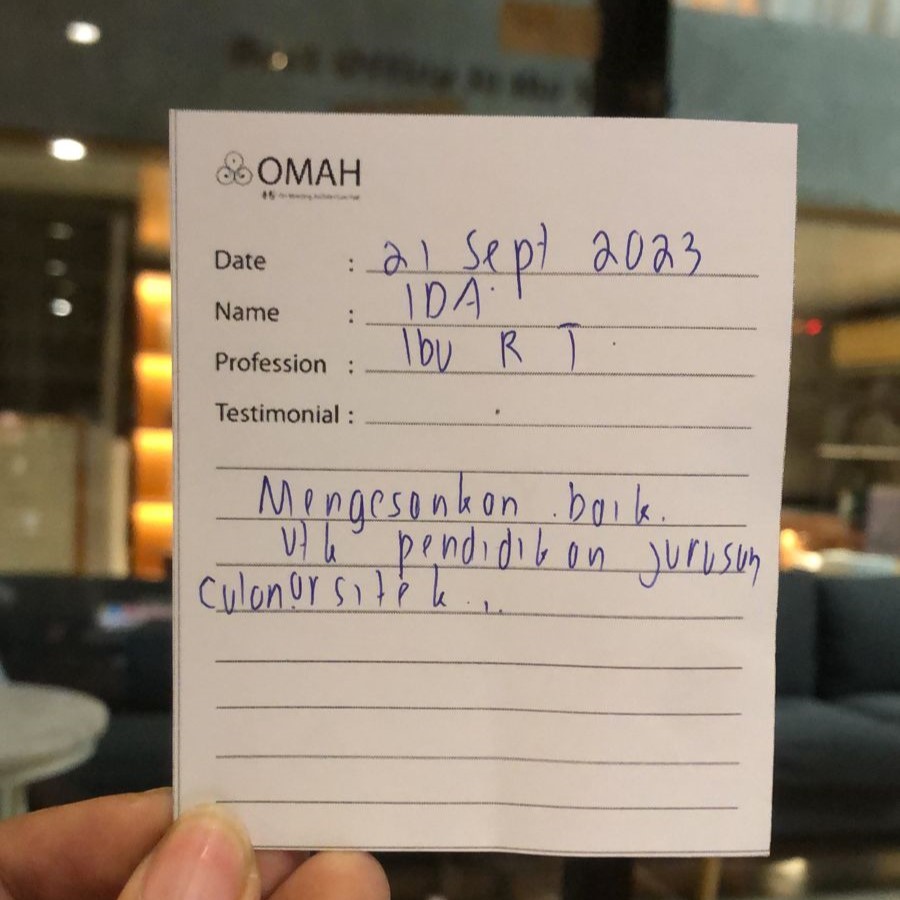 OMAH
Date : 21 Sept 2023
Name : IDA
Profession : Ibu R T
Testimonial :
Mengesankan baik.
Utk pendidikan jurusan
calon arsitek..